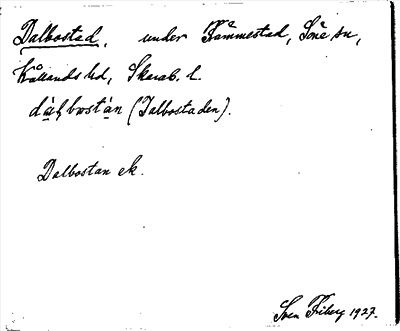 Dalbostad, under Tammestad, Sone sn,
Kållands hd, Skarab. l.
dàḷbωstàn (Dalbostaden).
Dalbostan ek.
Sven Friberg 1927.